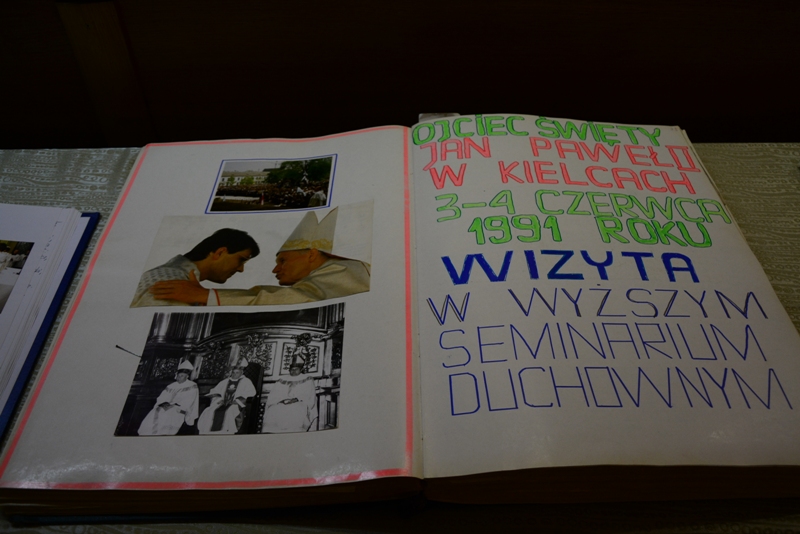 OJCIEC ŚWIĘTY
JAN PAWEŁ II
W KIELCACH
3-4 CZERWCA
1991 ROKU
WIZYTA
W WYŻSZYM
SEMINARIUM
DUCHOWNYM